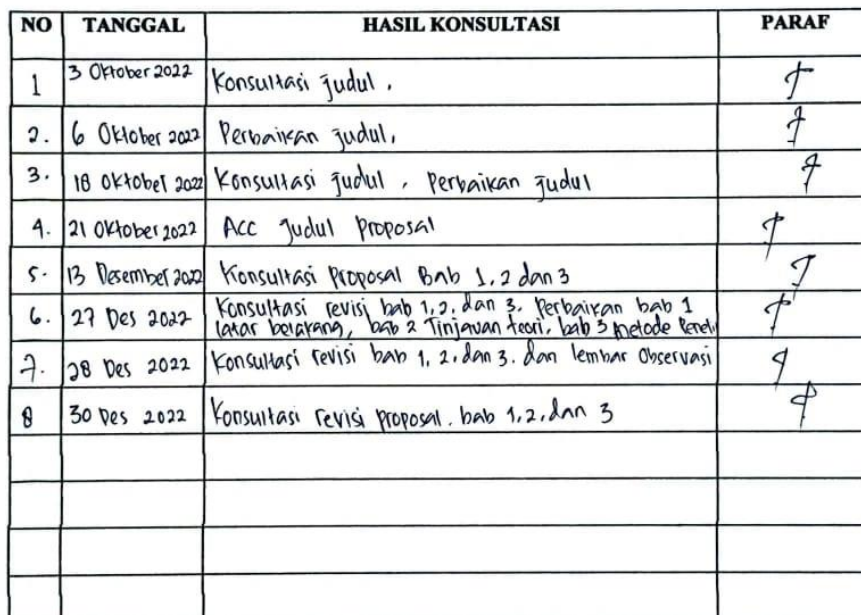 NO TANGGAL HASIL KONSULTASI PARAF
1 3 Oktober 2022 Konsultasi judul.
2. 6 Oktober 2022 Perbaikan judul,
3. 18 Oktober 2022 Konsultasi judul, Perbaikan judul
4. 21 Oktober 2022 Acc judul Proposal
5. 13 Desember 2022 Konsultasi Proposal Bab 1, 2 dan 3
6. 27 Des 2022 Konsultasi revisi bab 1, 2, dan 3. Perbaikan bab 1
latar belakang, bab 2 Tinjauan teori, bab 3 Metode Peneli
7. 28 Des 2022 Konsultasi revisi bab 1, 2, dan 3. dan lembar Observasi
8 30 Des 2022 Konsultasi revisi proposal. bab 1, 2, dan 3